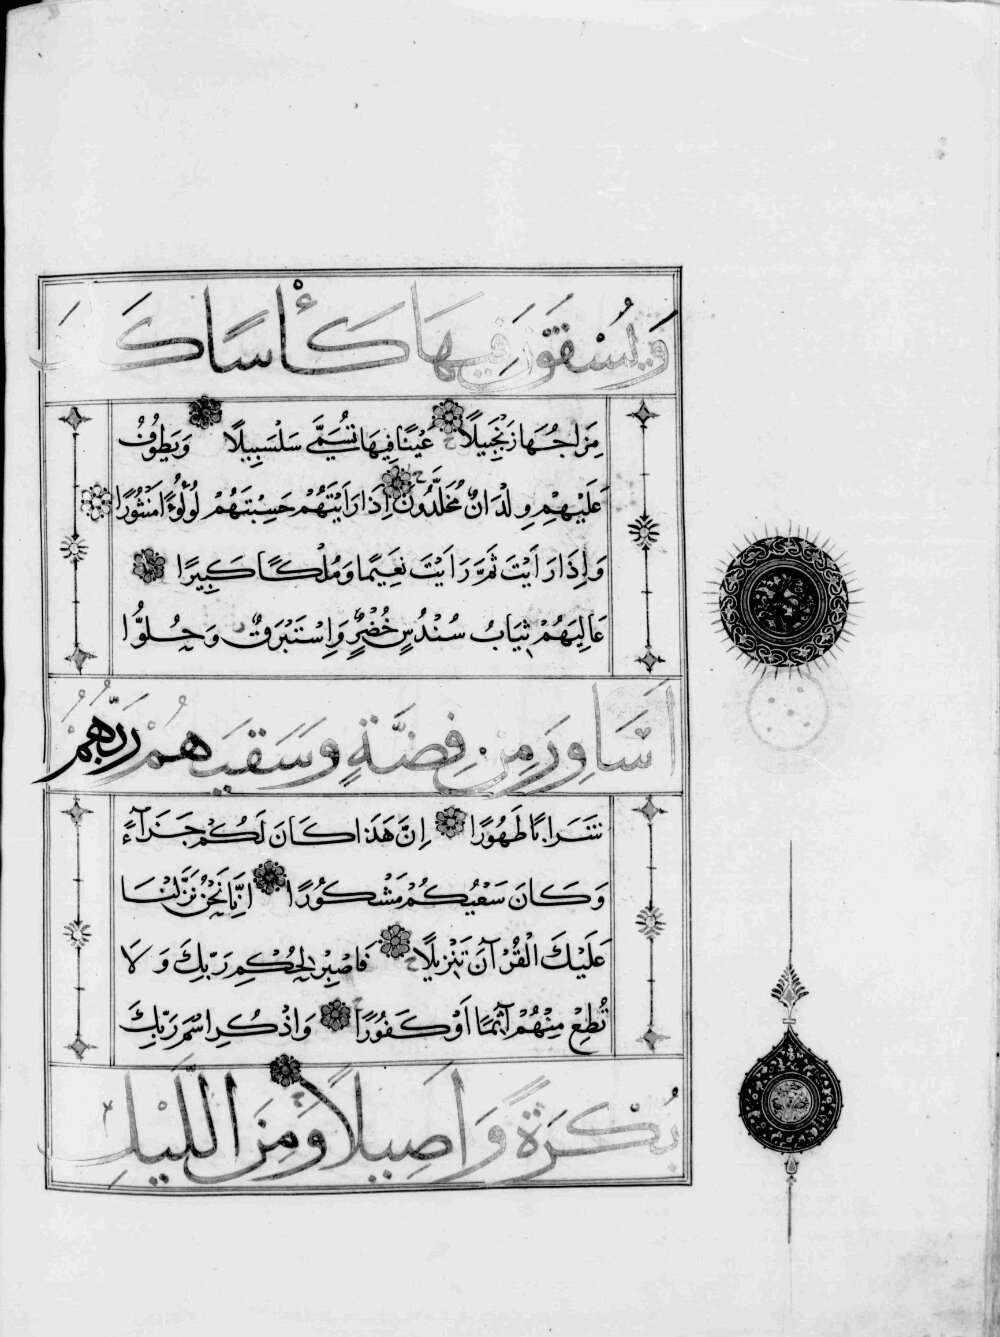 وَيُسْقَوْنَ فِيهَا كَأْسًا كَانَ
مِزَاجُهَا زَنْجَبِيلًا عَيْنًا فِيهَا تُسَمَّىٰ سَلْسَبِيلًا وَيَطُوفُ
عَلَيْهِمْ وِلْدَانٌ مُخَلَّدُونَ إِذَا رَأَيْتَهُمْ حَسِبْتَهُمْ لُؤْلُؤًا مَنْثُورًا
وَإِذَا رَأَيْتَ ثَمَّ رَأَيْتَ نَعِيمًا وَمُلْكًا كَبِيرًا
عَالِيَهُمْ ثِيَابُ سُنْدُسٍ خُضْرٍ وَإِسْتَبْرَقٌ وَحُلُّوا
أَسَاوِرَ مِنْ فِضَّةٍ وَسَقَيٰهُمْ رَبُّهُمْ
شَرَابًا طَهُورًا إِنَّ هَذَا كَانَ لَكُمْ جَزَآءً
وَكَانَ سَعْيُكُمْ مَشْكُورًا إِنَّا نَحْنُ نَزَّلْنَا
عَلَيْكَ الْقُرْآنَ تَنْزِيلًا فَاصْبِرْ لِحُكْمِ رَبِّكَ وَلَا
تُطِعْ مِنْهُمْ آثِمًا أَوْ كَفُورًا وَاذْكُرِ اسْمَ رَبِّكَ
بُكْرَةً وَأَصِيلًا وَمِنَ اللَّيْلِ